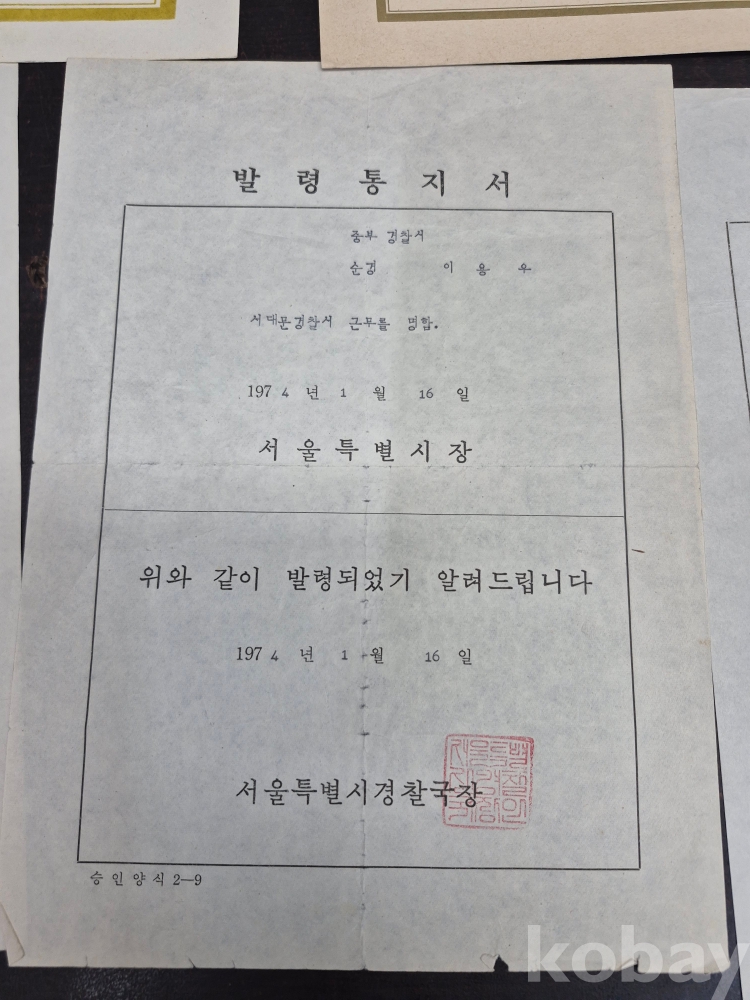 발령통지서
중부 경찰서
순경 이용우
서대문경찰서 근무를 명함.
1974년 1월 16일
서울특별시장
위와 같이 발령되었기 알려드립니다
1974년 1월 16일
서울특별시경찰국장
승인양식 2—9
kobay